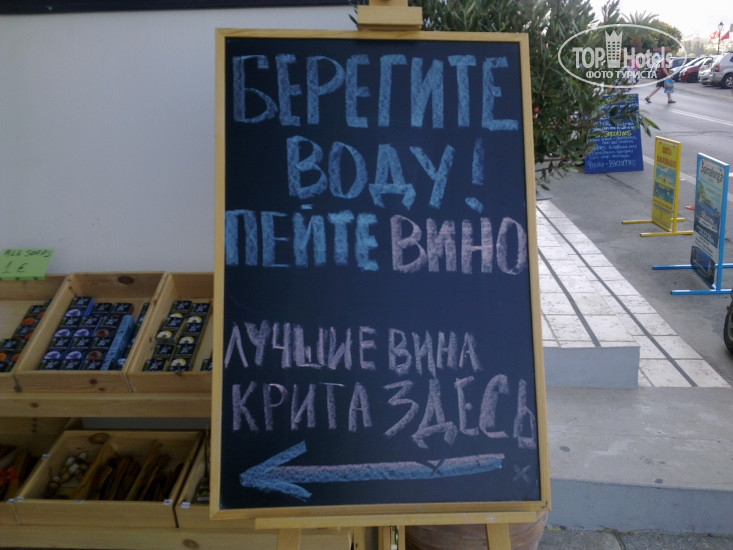 БЕРЕГИТЕ
ВОДУ!
ПЕЙТЕ ВИНО
ЛУЧШИЕ ВИНА
КРИТА ЗДЕСЬ
ALL SOAPS
1 €
TOP Hotels
ФОТО ТУРИСТА